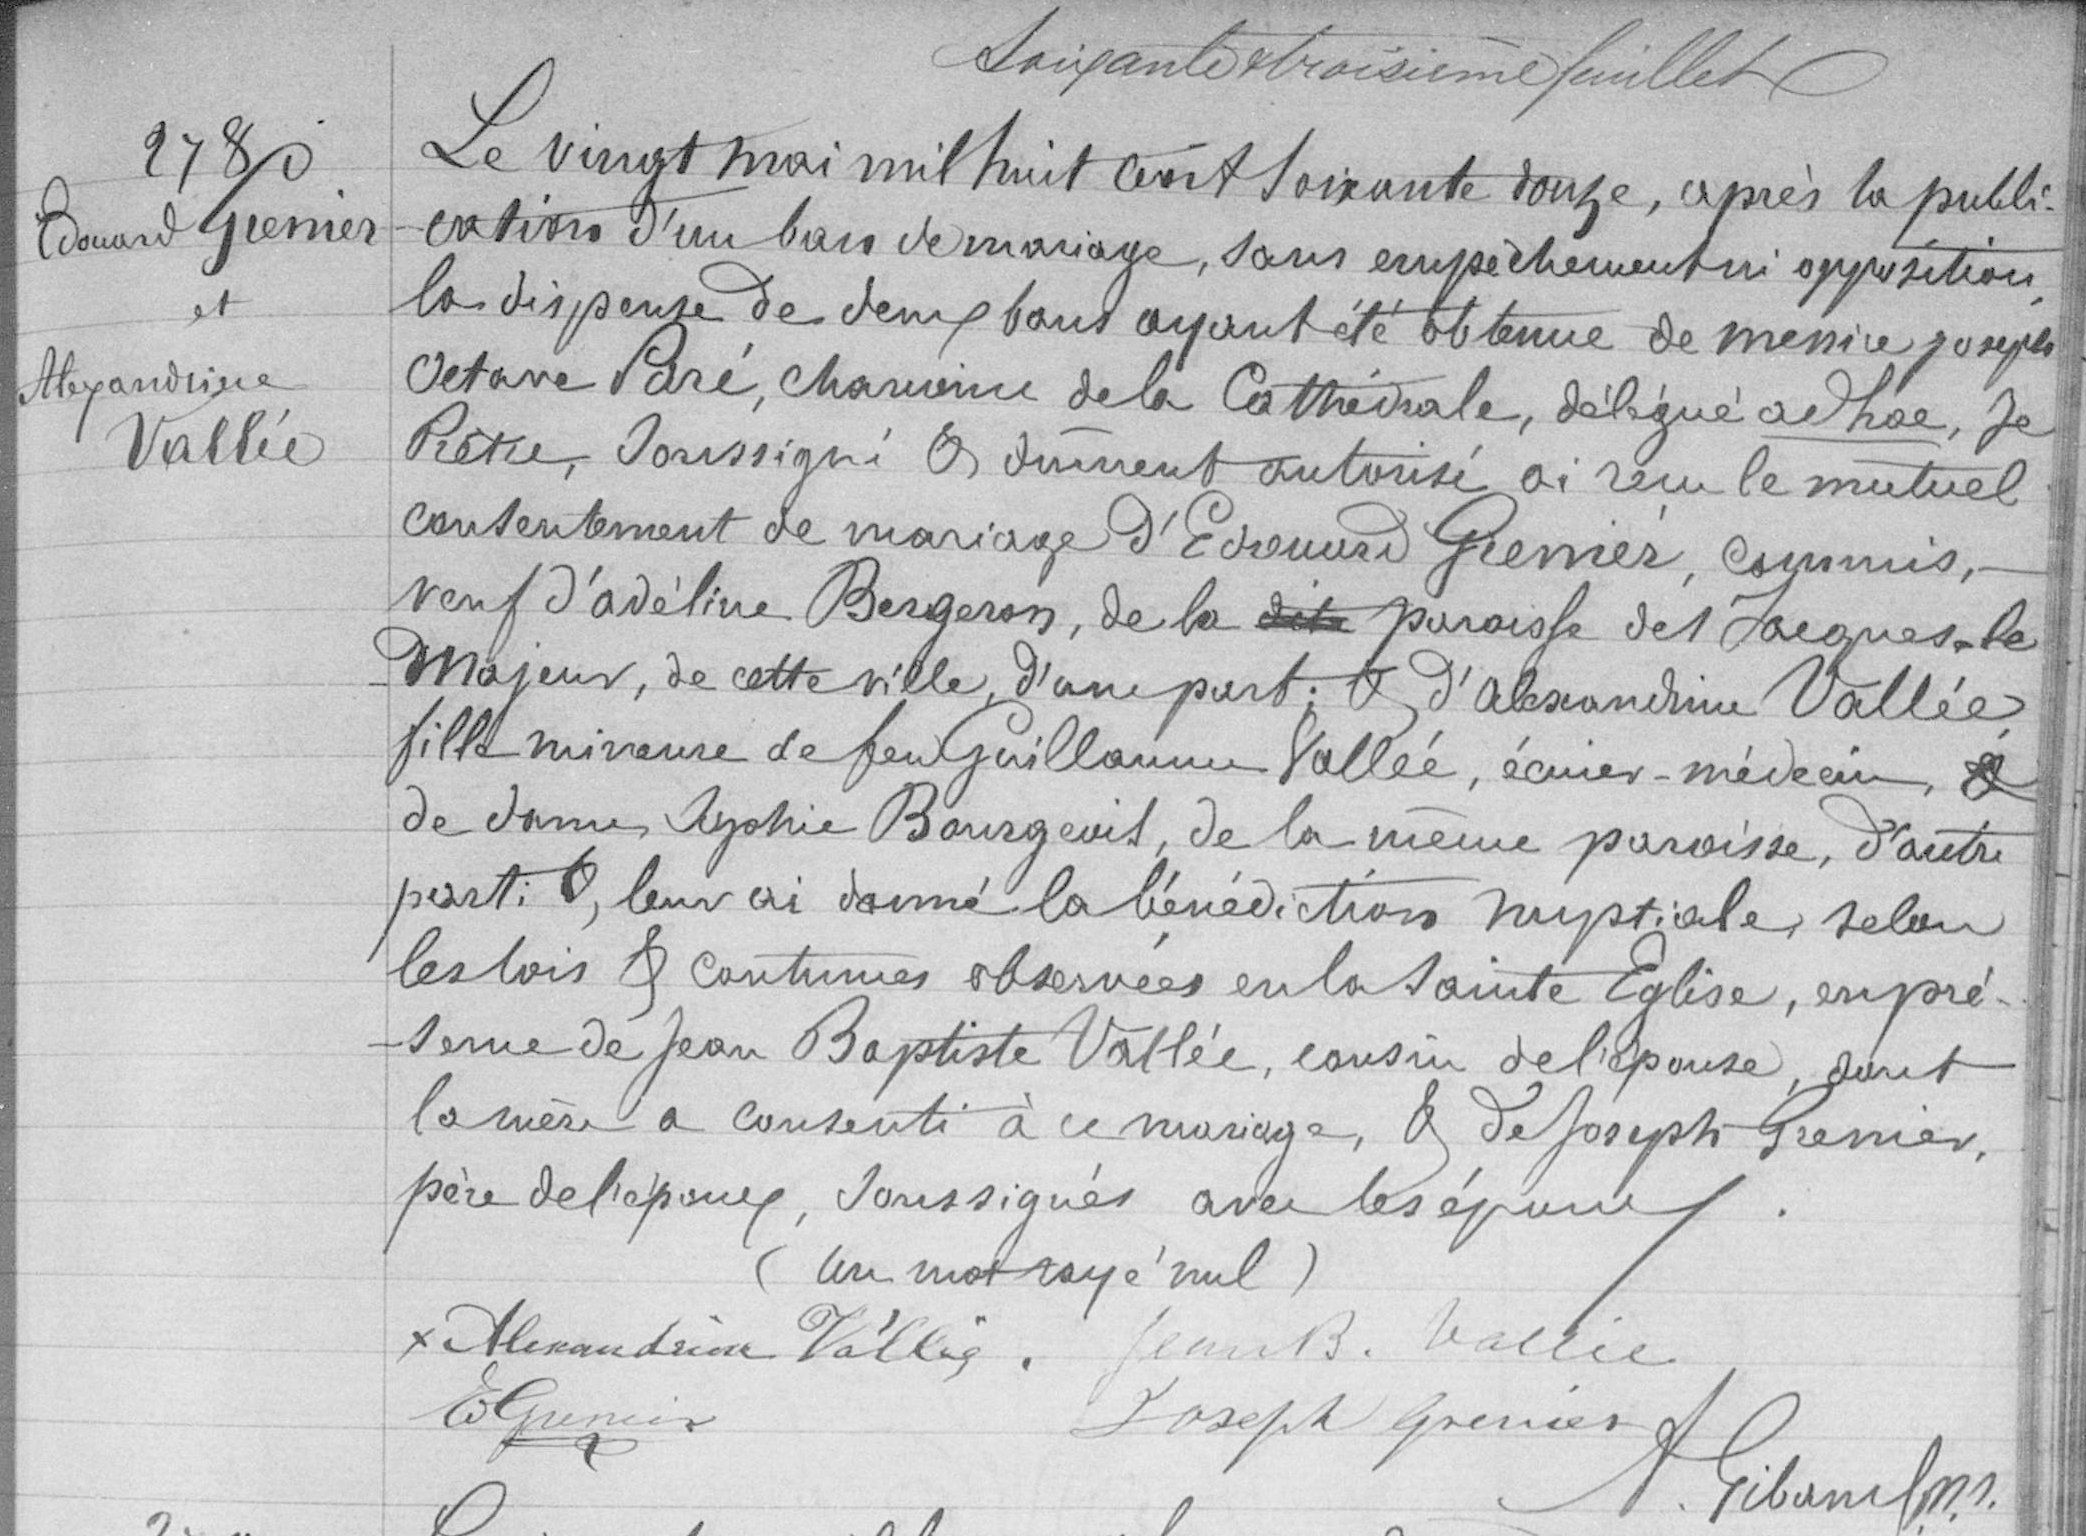 Soixante & troisième feuillet
278
Edouard Grenier
et
Alexandrine
Vallée
Le vingt mai mil huit cent soixante douze, après la publi-
-cation d'un ban de mariage, sans empêchement ni opposition,
la dispense de deux bans ayant été obtenue de messire joseph
Octave Paré, chanoine de la Cathédrale, délégué ad hoc, Je
Prêtre, soussigné & dûment autorisé ai reçu le mutuel
consentement de mariage d'Edouard Grenier, commis,
veuf d'adéline Bergeron, de la dite paroisse de St Jacques-le
-Majeur, de cette ville, d'une part; & d'Alexandrine Vallée
fille mineure de feu Guillaume Vallée, écuier-médecin, &
de dame Sophie Bourgeois, de la même paroisse, d'autre
part; &, leur ai donné la bénédiction nuptiale, selon
les lois & coutumes observées en la Sainte Eglise, en pré-
-sence de Jean Baptiste Vallée, cousin de l'épouse, dont
la mère a consenti à ce mariage, & de Joseph Grenier,
père de l'époux, soussignés avec les époux.
(un mot rayé nul)
x Alexandrine Vallée. Jean B. Vallée
Ed Grenier Joseph Grenier